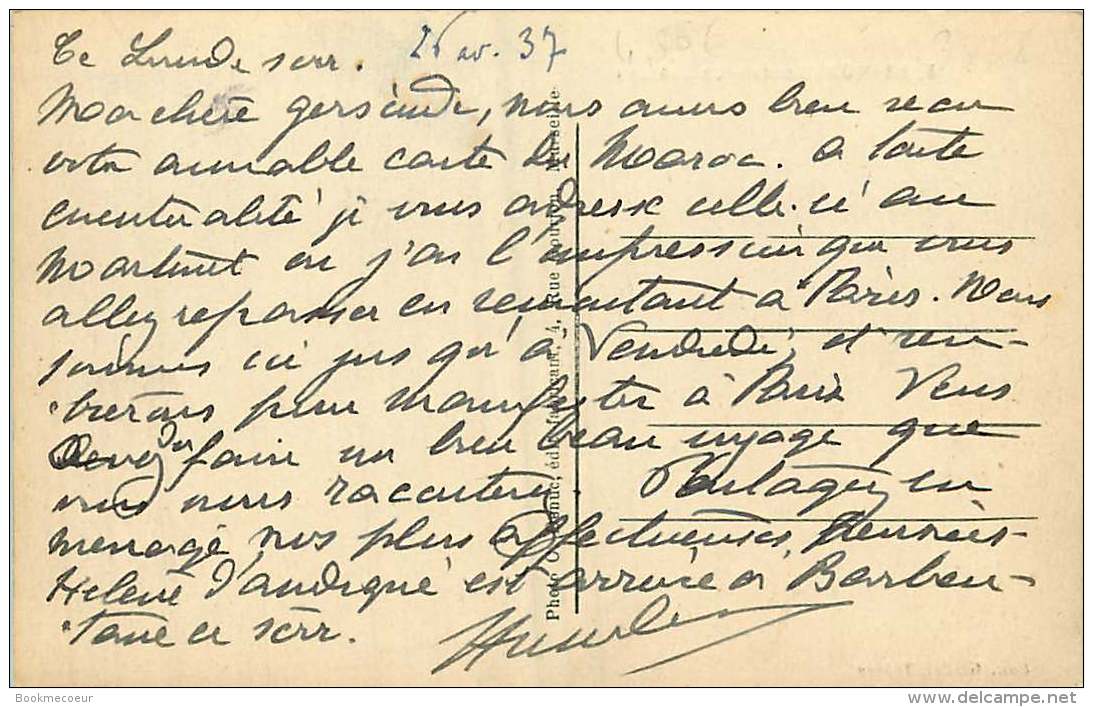 Ce Lundi soir. 26 av. 37
Ma chère Gersende, nous avons bien reçu
votre aimable carte du Maroc. A toute
éventualité je vous adresse celle-ci au
Martinet où j'ai l'impression que vous
allez repasser en remontant à Paris. Nous
sommes ici jusqu'à Vendredi, et ren-
trerons pour manifester à Paris Vous
devez faire un bien beau voyage que
vous nous raconterez. Partagez en
ménage nos plus affectueuses pensées.
Hélène d'Andigné est arrivée à Barben-
tane ce soir.
Photo édit. fabricant, 4, Rue Marseille
Bookmecoeur
delcampe.net